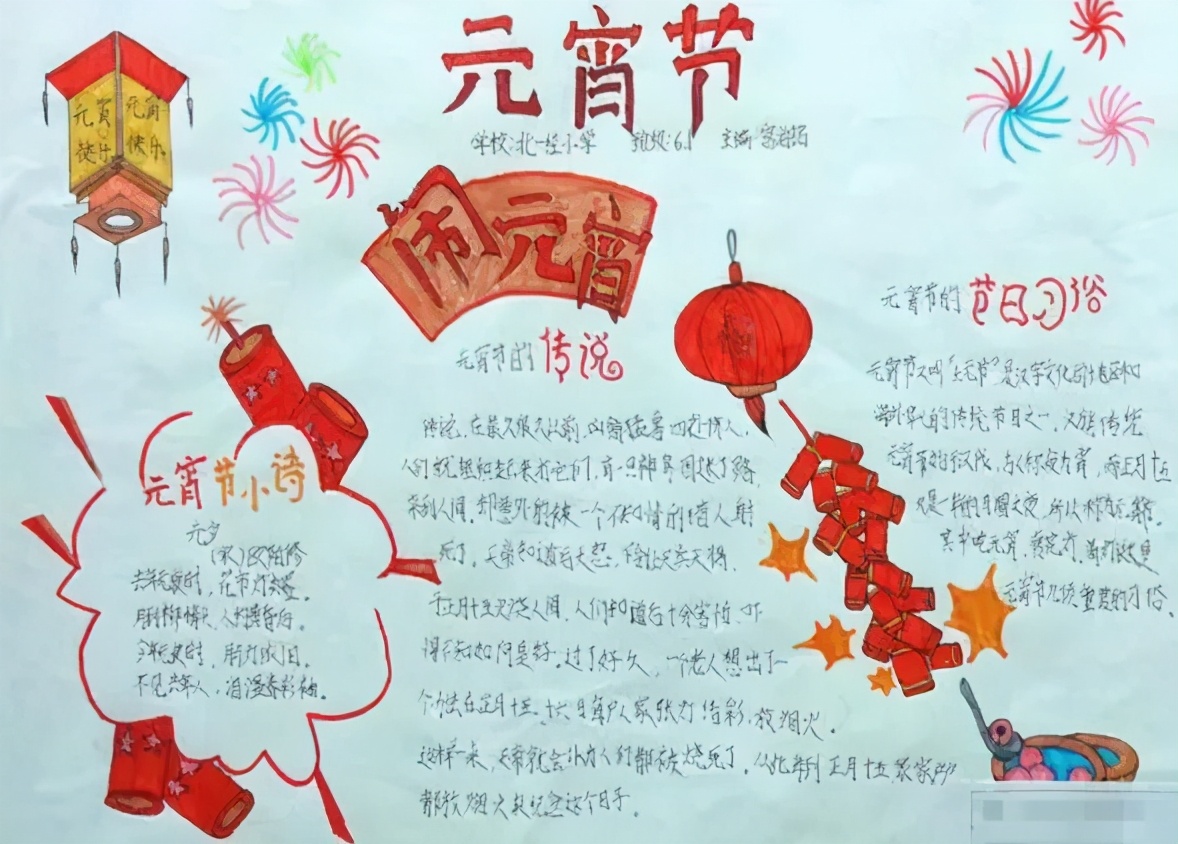 元宵节
学校:北一经小学 班级:6.1 主编:
元宵 元宵
快乐 快乐
闹元宵
元宵节的传说
传说,在很久很久以前,凶禽猛兽四处伤人,
人们就组织起来打它们,有一只神鸟因迷了路
来到人间,却意外的被一个不知情的猎人射
死了,天帝知道后大怒,传让天兵天将,
于正月十五火烧人间,人们知道后十分害怕,吓
得不知如何是好。过了好久,一个老人想出了一
个办法在正月十五、十六日每户人家张灯结彩,放烟火。
这样一来,天帝就会以为人们都被烧死了。从此每到正月十五,家家户户
都放烟火来纪念这个日子。
元宵节小诗
元夕
(宋)欧阳修
去年元夜时,花市灯如昼。
月到柳梢头,人约黄昏后。
今年元夜时,月与灯依旧。
不见去年人,泪湿春衫袖。
元宵节的节日习俗
元宵节又叫“上元节”是汉字文化圈地区和
海外华人的传统节日之一,
元宵节的
又是一年的月圆之夜,所以称为元宵。
其中吃元宵,赏花灯,
元宵节几项重要的习俗。